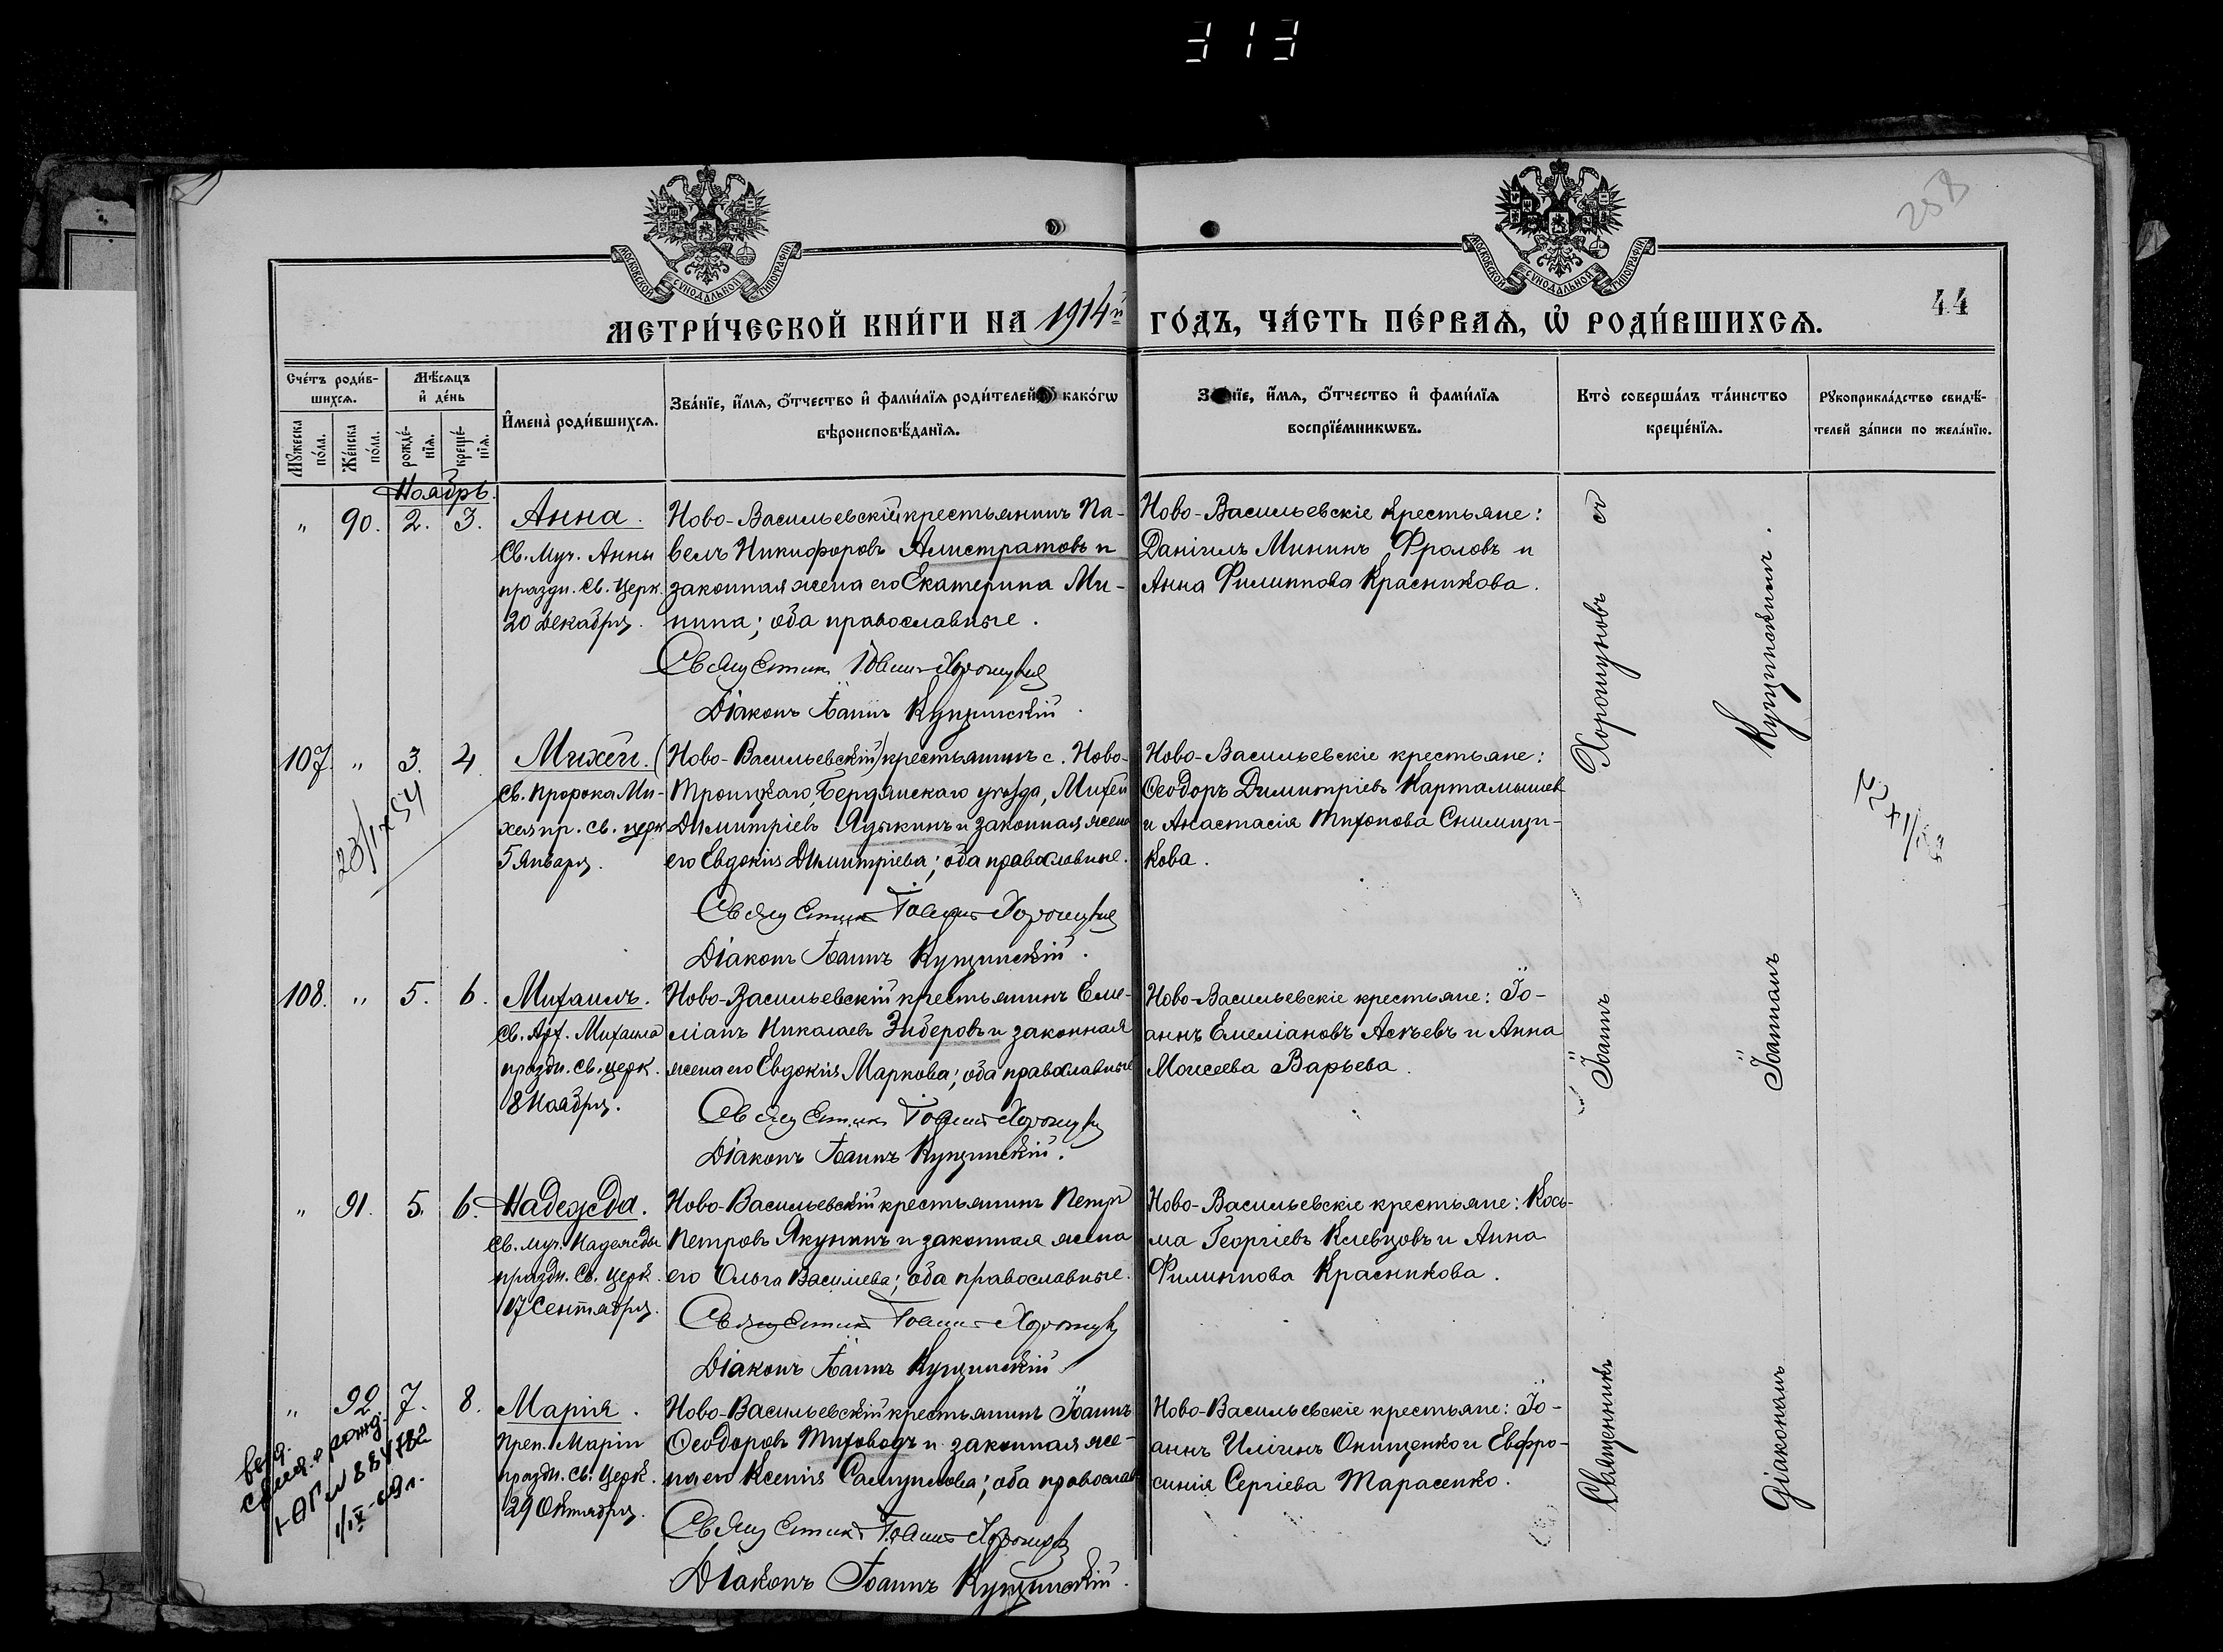 313
258
44
МОСКОВСКОЙ СѴНОДАЛЬНОЙ ТИПОГРАФІИ
МОСКОВСКОЙ СѴНОДАЛЬНОЙ ТИПОГРАФІИ
МЕТРИ́ЧЕСКОЙ КНИ́ГИ НА 1914й ГО́ДЪ, ЧА́СТЬ ПЕ́РВАѦ, Ѡ҆ РОДИ́ВШИХСѦ.
Сче́тъ роди́в-
шихсѧ.
Мꙋ́жеска по́ла.
Же́нска по́ла.
Мѣ́сѧцъ
и҆ де́нь
рожде́-
нїѧ.
креще́-
нїѧ.
И҆мена̀ роди́вшихсѧ.
Зва́нїе, и҆́мѧ, ѻ҆́тчество и҆ фами́лїѧ роди́телей како́гѡ
вѣроисповѣ́данїѧ.
и҆́мѧ, ѻ҆́тчество и҆ фами́лїѧ
воспрїе́мникѡвъ.
Кто̀ соверша́лъ та́инство
креще́нїѧ.
Рꙋкоприкла́дство свидѣ́-
телей за́писи по жела́нїю.
Ноябрь.
" 90. 2. 3. Анна.
Св. Муч. Анны
праздн. Св. Церк.
20 Декабря.
Ново-Васильевскій крестьянинъ Па-
велъ Никифоровъ Алистратовъ и
законная жена его Екатерина Ми-
нина; оба православные.
Священникъ Іоаннъ Хорошуновъ
Діаконъ Іоаннъ Купчинскій.
Ново-Васильевскіе крестьяне:
Даніилъ Мининъ Фроловъ и
Анна Филиппова Красникова.
107. " 3. 4. Михей.
Св. Пророка Ми-
хея пр. св. церк.
5 Января.
23/IX 54
(Ново-Васильевскій) крестьянинъ с. Ново-
Троицкаго, Бердянскаго уѣзда, Михей
Димитріевъ Ядыкинъ и законная жена
его Евдокія Димитріева; оба православные.
Священникъ Іоаннъ Хорошуновъ
Діаконъ Іоаннъ Купчинскій.
Ново-Васильевскіе крестьяне:
Ѳеодоръ Димитріевъ Картамышев
и Анастасія Тихонова
кова.
108. " 5. 6. Михаилъ.
Св. Арх. Михаила
праздн. св. церк.
8 Ноября.
Ново-Васильевскій крестьянинъ Еме-
ліанъ Николаевъ Зиберовъ и законная
жена его Евдокія Маркова; оба православные
Священникъ Іоаннъ Хорошуновъ
Діаконъ Іоаннъ Купчинскій.
Ново-Васильевскіе крестьяне: Іо-
аннъ Емеліановъ Аскѣевъ и Анна
Моисеева Варьева.
" 91. 5. 6. Надежда.
Св. муч. Надежды
праздн. Св. Церк.
17 Сентября.
Ново-Васильевскій крестьянинъ Петръ
Петровъ Якунинъ и законная жена
его Ольга Василіева; оба православные.
Священникъ Іоаннъ Хорошуновъ
Діаконъ Іоаннъ Купчинскій
Ново-Васильевскіе крестьяне: Кось-
ма Георгіевъ Клевцовъ и Анна
Филиппова Красникова.
" 92. 7. 8. Марія.
Преп. Маріи
праздн. св. Церк.
29 Октября.
Ново-Васильевскій крестьянинъ Іоаннъ
Ѳеодоровъ Тиховодъ и законная же-
на его Ксенія Самуилова; оба православ
Священникъ Іоаннъ Хорошуновъ
Діаконъ Іоаннъ Купчинскій.
Ново-Васильевскіе крестьяне: Іо-
аннъ Илiинъ Онищенко и Евфро-
синія Сергіева Тарасенко.
Священникъ Іоаннъ Хорошуновъ съ
діакономъ Іоанномъ Купчинскимъ.